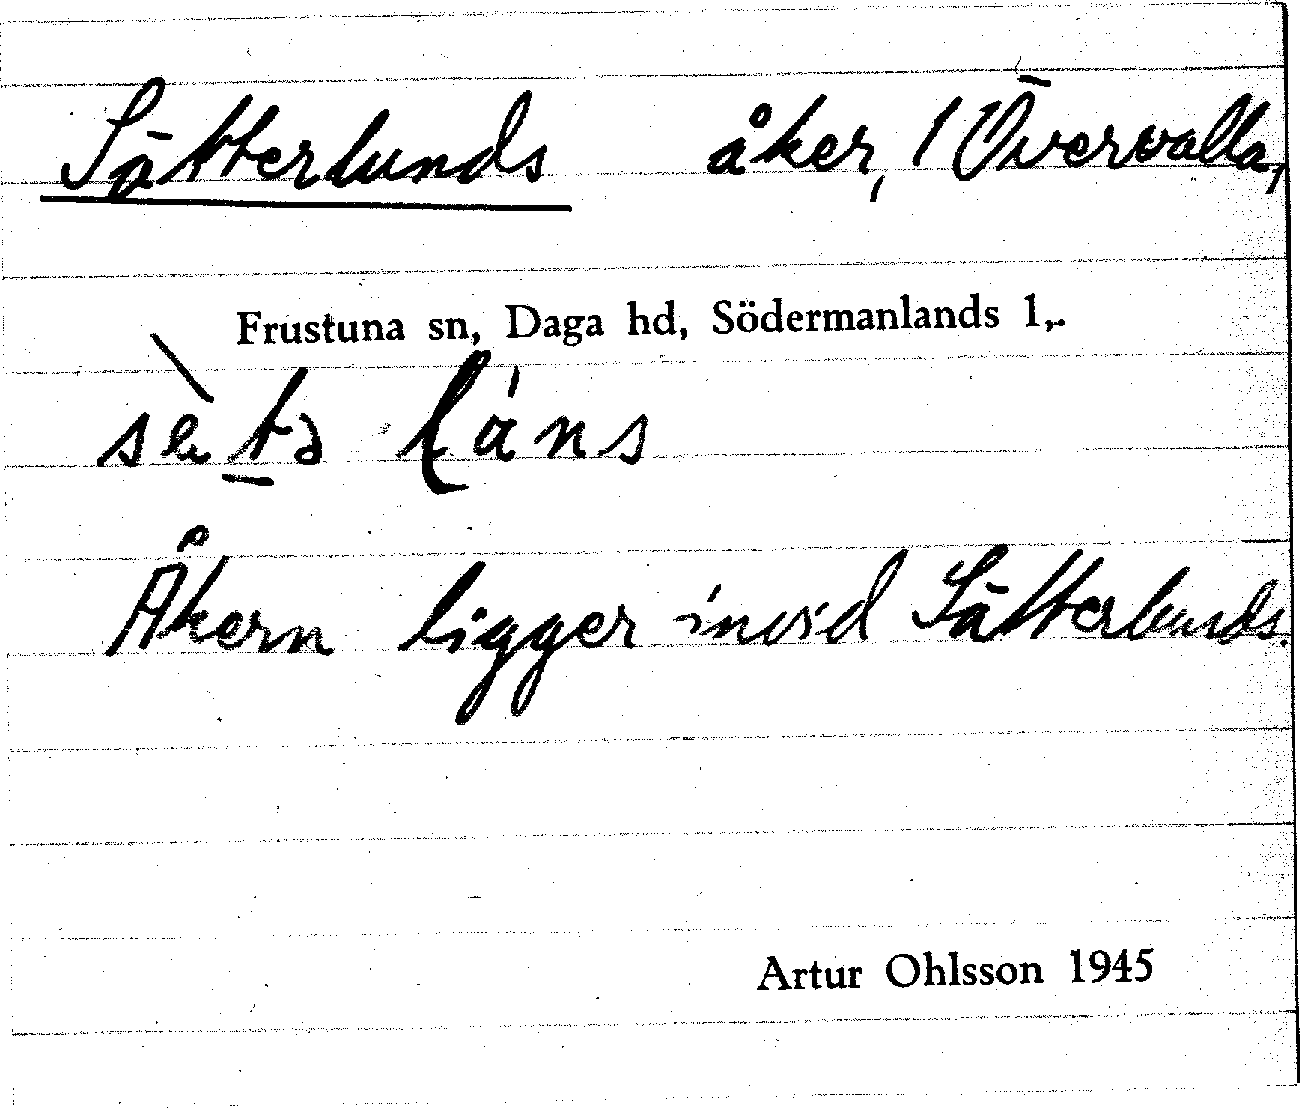 Sätterlunds åker, 1 Övervalla,
Frustuna sn, Daga hd, Södermanlands l,.
Åkern ligger invid Sätterlunds.
Artur Ohlsson 1945